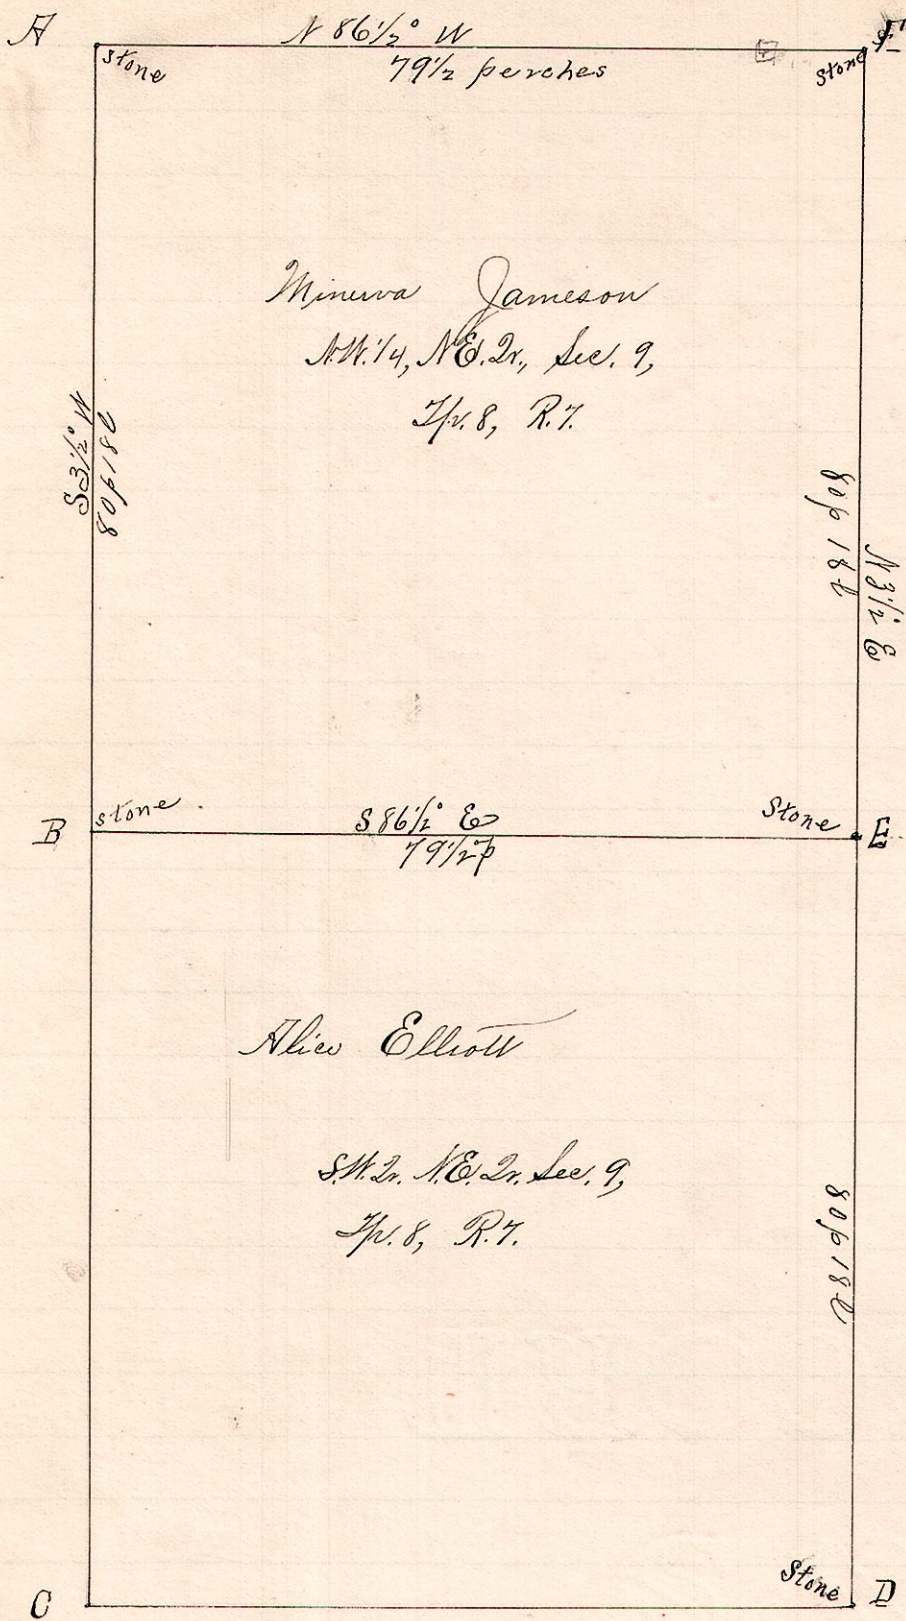 A N 86 1/2° W F
79 1/2 perches
stone
stone
Minerva Jameson
N.W. 1/4, N.E. Qr., Sec. 9,
Tp. 8, R. 7.
S 3 1/2° W
80 p 18 l
80 p 18 l
N 3 1/2° E
B stone
S 86 1/2° E
Stone E
79 1/2 p
Alice Elliott
S.W. Qr. N.E. Qr. Sec. 9,
Tp. 8, R. 7.
80 p 18 l
Stone
C D